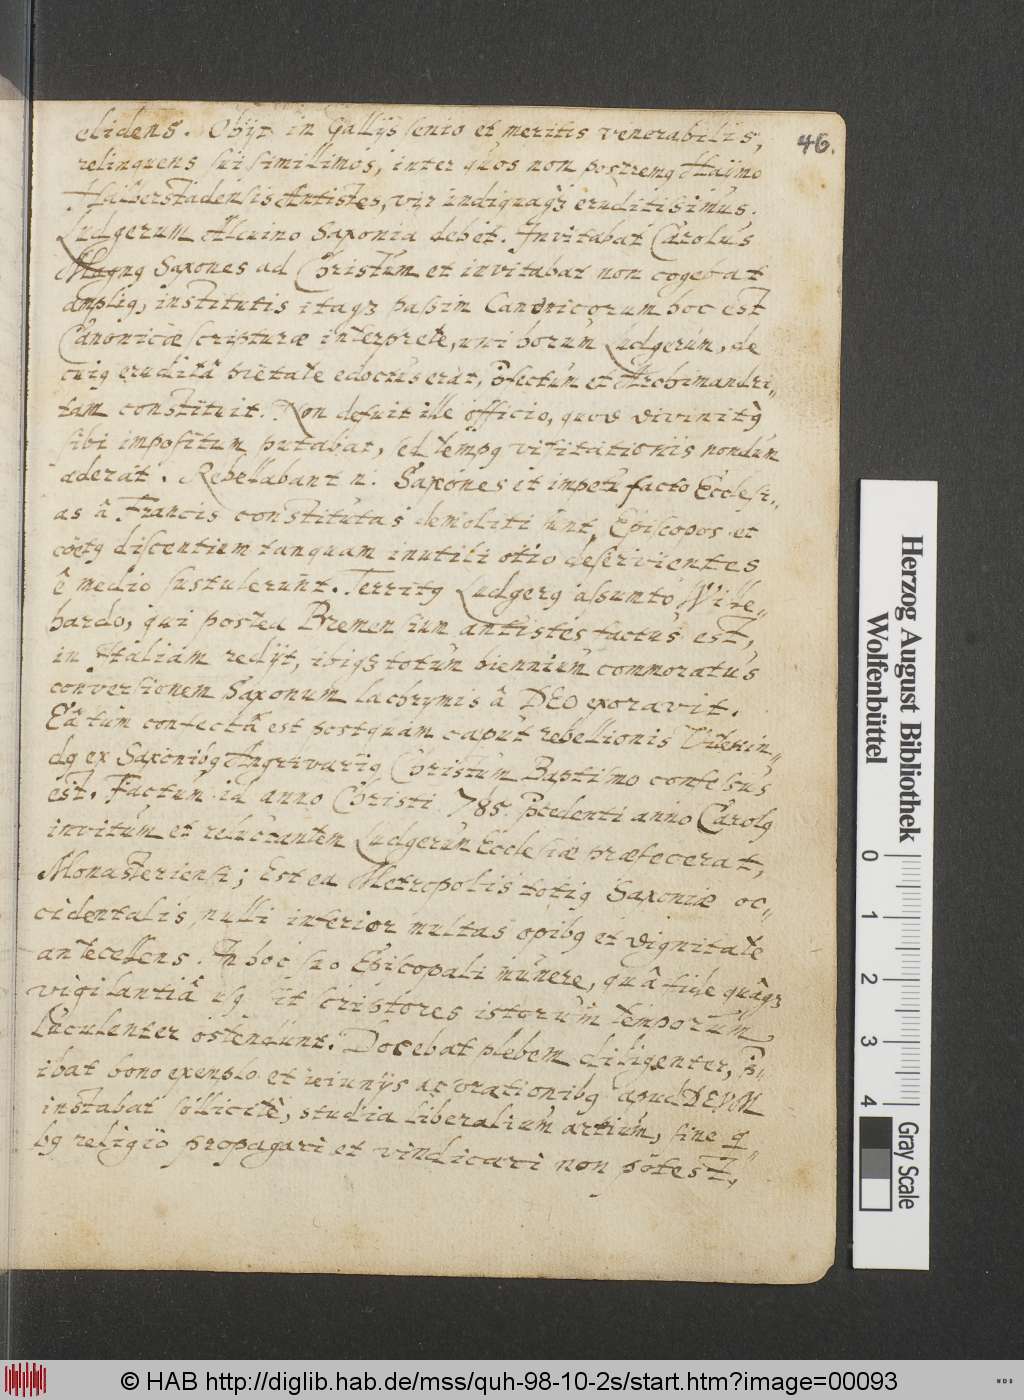 46.
elidens. Obijt in Gallijs senio et meritis venerabilis,
relinquens sui simillimos, inter quos non postremq Haijmo
Halberstadensis Antistes, vir undiquaqz eruditissimus.
Ludgerum Alcuino Saxonia debet. Invitabat Carolus
Magnq Saxones ad Christum et invitabat non cogebat
ampliq, institutis itaqz passim Canonicorum hoc est
Canonicæ scripturæ interprete, uni horum Ludgerum, de
cuiq eruditâ pietate edoctus erat, Pfectum et Archimandri„
tam constituit. Non defuit ille officio, quod divinitq
sibi impositum putabat, sed tempq visitationis nondum
aderat. Rebellabant n. Saxones et impetu facto Ecclesi„
as â Francis constitutas demoliti sunt, Episcopos et
coetq discentium tanquam inutili otio deservientes
ê medio sustulerunt. Territq Ludgerq assumto Wille„
hardo, qui postea Bremensium antistes factus est,
in Italiam redijt, ibiqz totum biennium commoratus
conversionem Saxonum lachrymis â DEO exoravit.
Ea tum confecta est postquam caput rebellionis Videkin„
dq ex Saxonibq Angrivarijq Christum Baptismo confessus
est. Factum id anno Christi 785. Pcedenti anno Carolq
invitum et reluctantem Ludgerum Ecclesiæ præfecerat,
Monasteriensi; Est ea Metropolis totiq Saxoniæ oc„
cidentalis, nulli inferior multas opibq et dignitate
antecellens. In hoc suo Episcopali munere, quâ fide quâqz
vigilantiâ usq sit scriptores istorum temporum
luculenter ostendunt. Docebat plebem diligenter, P„
ibat bono exemplo et ieiunijs ac orationibq apud DEUM
instabat sollicitè, studia liberalium artium, sine q„
bq religio propagari et vindicari non potest,
Herzog August Bibliothek
Wolfenbüttel
0 1 2 3 4
Gray Scale
© HAB http://diglib.hab.de/mss/quh-98-10-2s/start.htm?image=00093